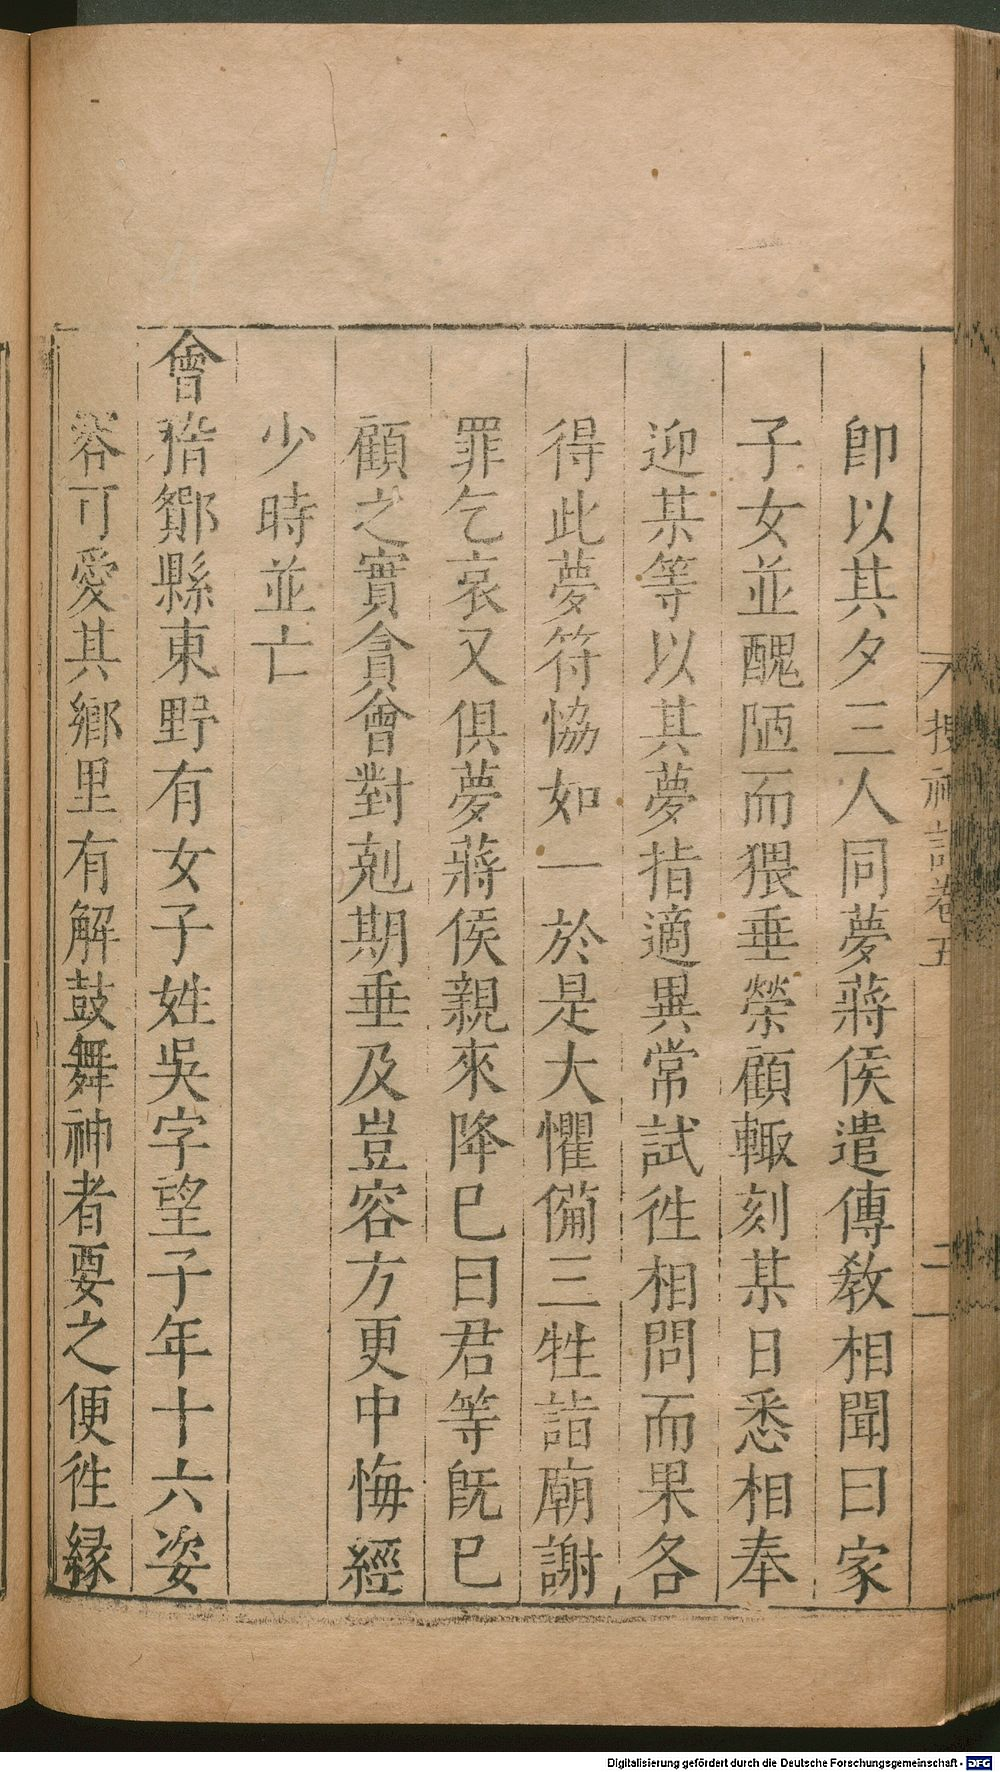 搜神記卷五
二
卽以其夕三人同夢蔣侯遣傳教相聞曰家
子女並醜陋而猥垂榮顧輙刻某日悉相奉
迎某等以其夢指適異常試徃相問而果各
得此夢符恊如一於是大懼備三牲詣廟謝
罪乞哀又俱夢蔣侯親來降巳曰君等旣巳
顧之實貪會對剋期垂及豈容方更中悔經
少時並亡
會稽鄮縣東野有女子姓吳字望子年十六姿
容可愛其鄉里有解鼓舞神者要之便徃緣
Digitalisierung gefördert durch die Deutsche Forschungsgemeinschaft - DFG